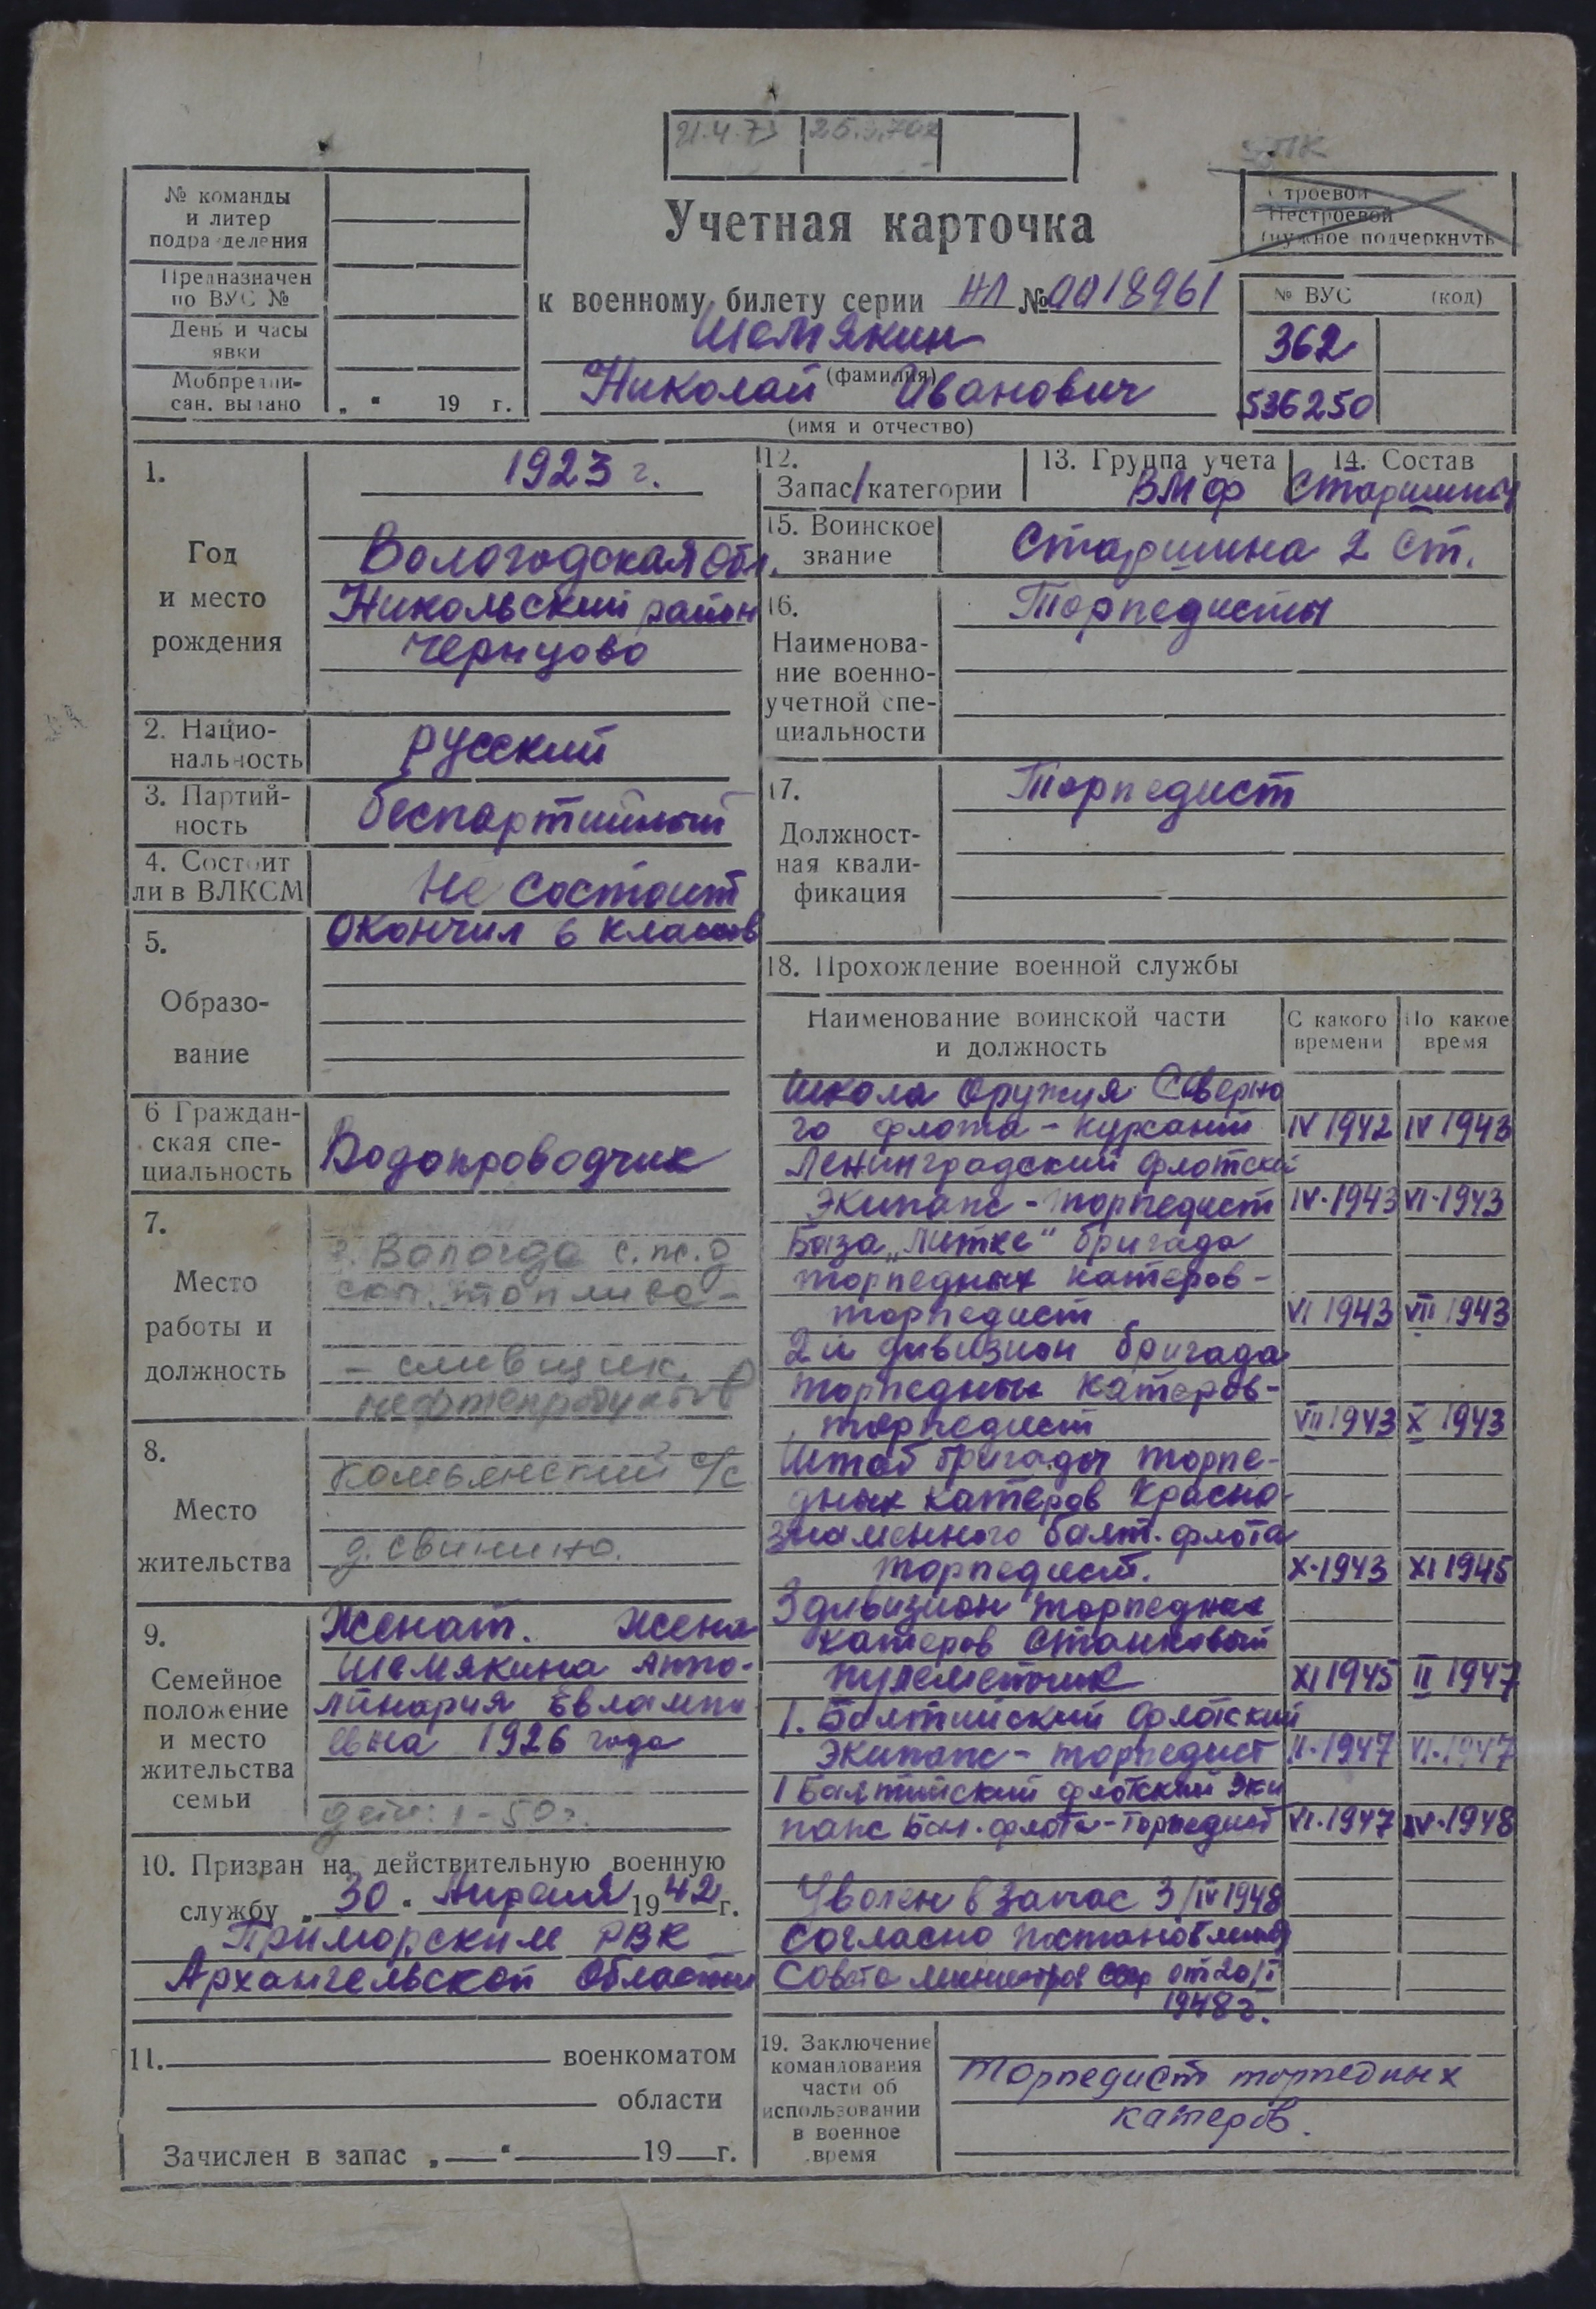 21.4.73
№ команды
и литер
подразделения
Предназначен
по ВУС №
День и часы
явки
Мобпредпи-
сан. выдано „ " 19 г.
Учетная карточка
к военному билету серии НЛ № 0018961
Шемякин
(фамилия)
Николай Иванович
(имя и отчество)
Строевой
Нестроевой
(нужное подчеркнуть
№ ВУС (код)
362
536250
1.
Год
и место
рождения
1923 г.
Вологодская обл.
Никольский район
Чернцово
2. Нацио-
нальность
русский
3. Партий-
ность
беспартийный
4. Состоит
ли в ВЛКСМ
Не состоит
5.
Образо-
вание
Окончил 6 классов
6 Граждан-
ская спе-
циальность
Водопроводчик
7.
Место
работы и
должность
г. Вологда с.ж.д
топлива -
- сливщик
нефтепродуктов
8.
Место
жительства
с/с
д. Свинино.
9.
Семейное
положение
и место
жительства
семьи
Женат. Жена
Шемякина Аппо-
линария Евлампи
евна 1926 года
дети: 1-50г.
10. Призван на действительную военную
службу „30" Апреля 1942 г.
Приморским РВК
Архангельской области
11. военкоматом
области
Зачислен в запас „ " 19 г.
12.
Запас/категории
13. Группа учета
ВМФ
14. Состав
Старшины
15. Воинское
звание
Старшина 2 ст.
16.
Наименова-
ние военно-
учетной спе-
циальности
Торпедисты
17.
Должност-
ная квали-
фикация
Торпедист
18. Прохождение военной службы
Наименование воинской части
и должность
С какого
времени
По какое
время
Школа оружия Северно
го флота - курсант IV 1942 IV 1943
Ленинградский флотский
экипаж - торпедист IV·1943 VI·1943
База „Литке" бригада
торпедных катеров -
торпедист VI 1943 VII 1943
2й дивизион бригада
торпедных катеров -
торпедист VII 1943 X 1943
Штаб бригады торпе-
дных катеров Красно-
знаменного балт. флота
торпедист. X·1943 XI 1945
3 дивизион торпедных
катеров станковый
пулеметчик XI 1945 II 1947
1. Балтийский флотский
экипаж - торпедист II·1947 VI·1947
1 Балтийский флотский эки
паж Бал. флота - торпедист VI·1947 IV·1948
Уволен в запас 3/IV 1948
согласно постановления
Совета министров СССР от 20/I
1948г.
19. Заключение
командования
части об
использовании
в военное
время
Торпедист торпедных
катеров.